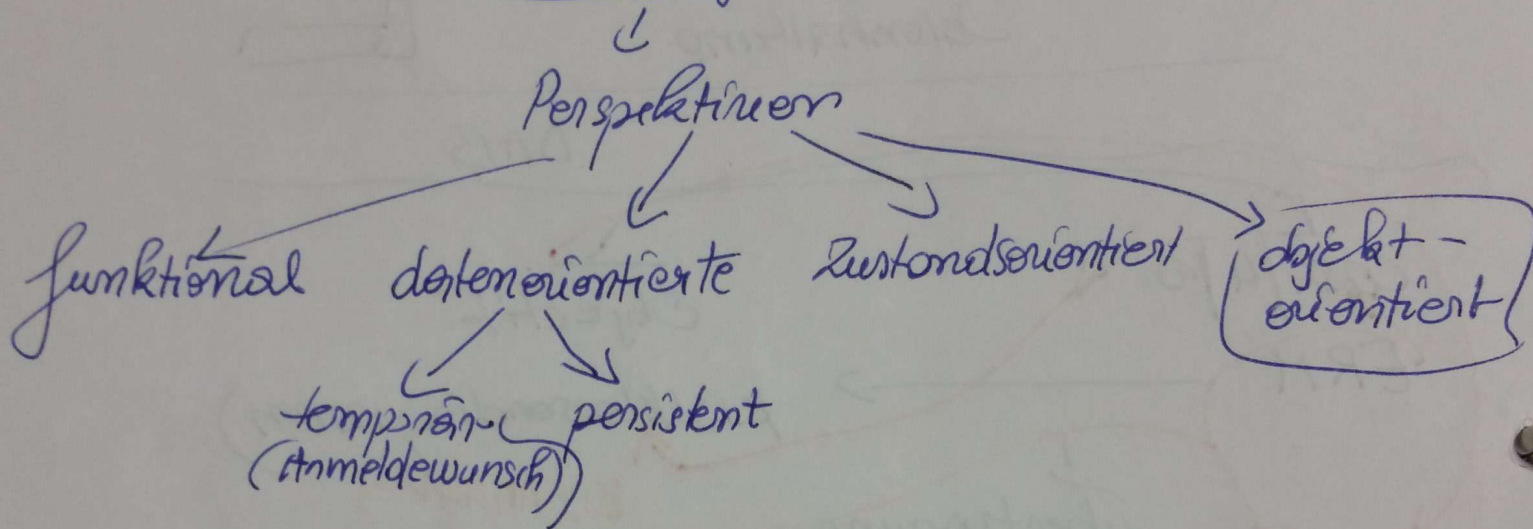 Perspektiven
funktional datenorientierte Zustandsorientiert objekt-
orientiert
temporär persistent
(Anmeldewunsch)